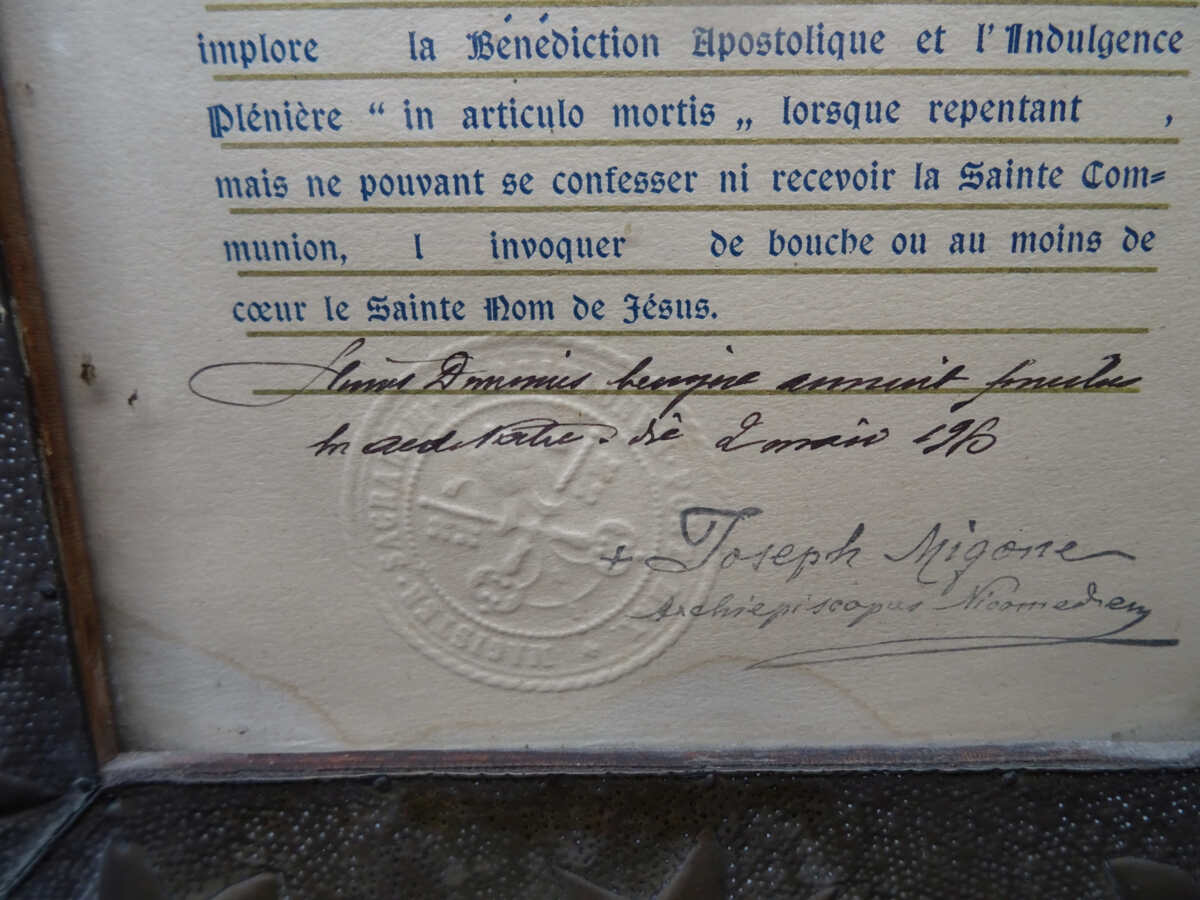 implore la Bénédiction Apostolique et l'Indulgence
Plénière “ in articulo mortis „ lorsque repentant ,
mais ne pouvant se confesser ni recevoir la Sainte Com=
munion, l invoquer de bouche ou au moins de
cœur le Sainte Nom de Jésus.
Dominus benigne annuit
die 2
+ Joseph Migone
Archiepiscopus Nicomedien